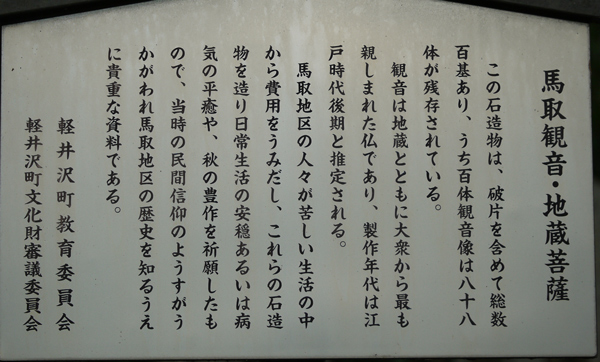 馬取観音・地蔵菩薩
この石造物は、破片を含めて総数
百基あり、うち百体観音像は八十八
体が残存されている。
観音は地蔵とともに大衆から最も
親しまれた仏であり、製作年代は江
戸時代後期と推定される。
馬取地区の人々が苦しい生活の中
から費用をうみだし、これらの石造
物を造り日常生活の安穏あるいは病
気の平癒や、秋の豊作を祈願したも
ので、当時の民間信仰のようすがう
かがわれ馬取地区の歴史を知るうえ
に貴重な資料である。
軽井沢町教育委員会
軽井沢町文化財審議委員会